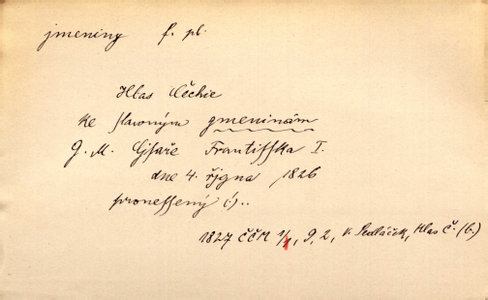 jmeniny f. pl.
Hlas Čechie
ke slawným gmeninám
G. M. Cjsaře Františka I.
dne 4. řjgna 1826
pronessený
1827 ČČM 1/1, 9, 2, V. Sedláček, Hlas Č. (b.)